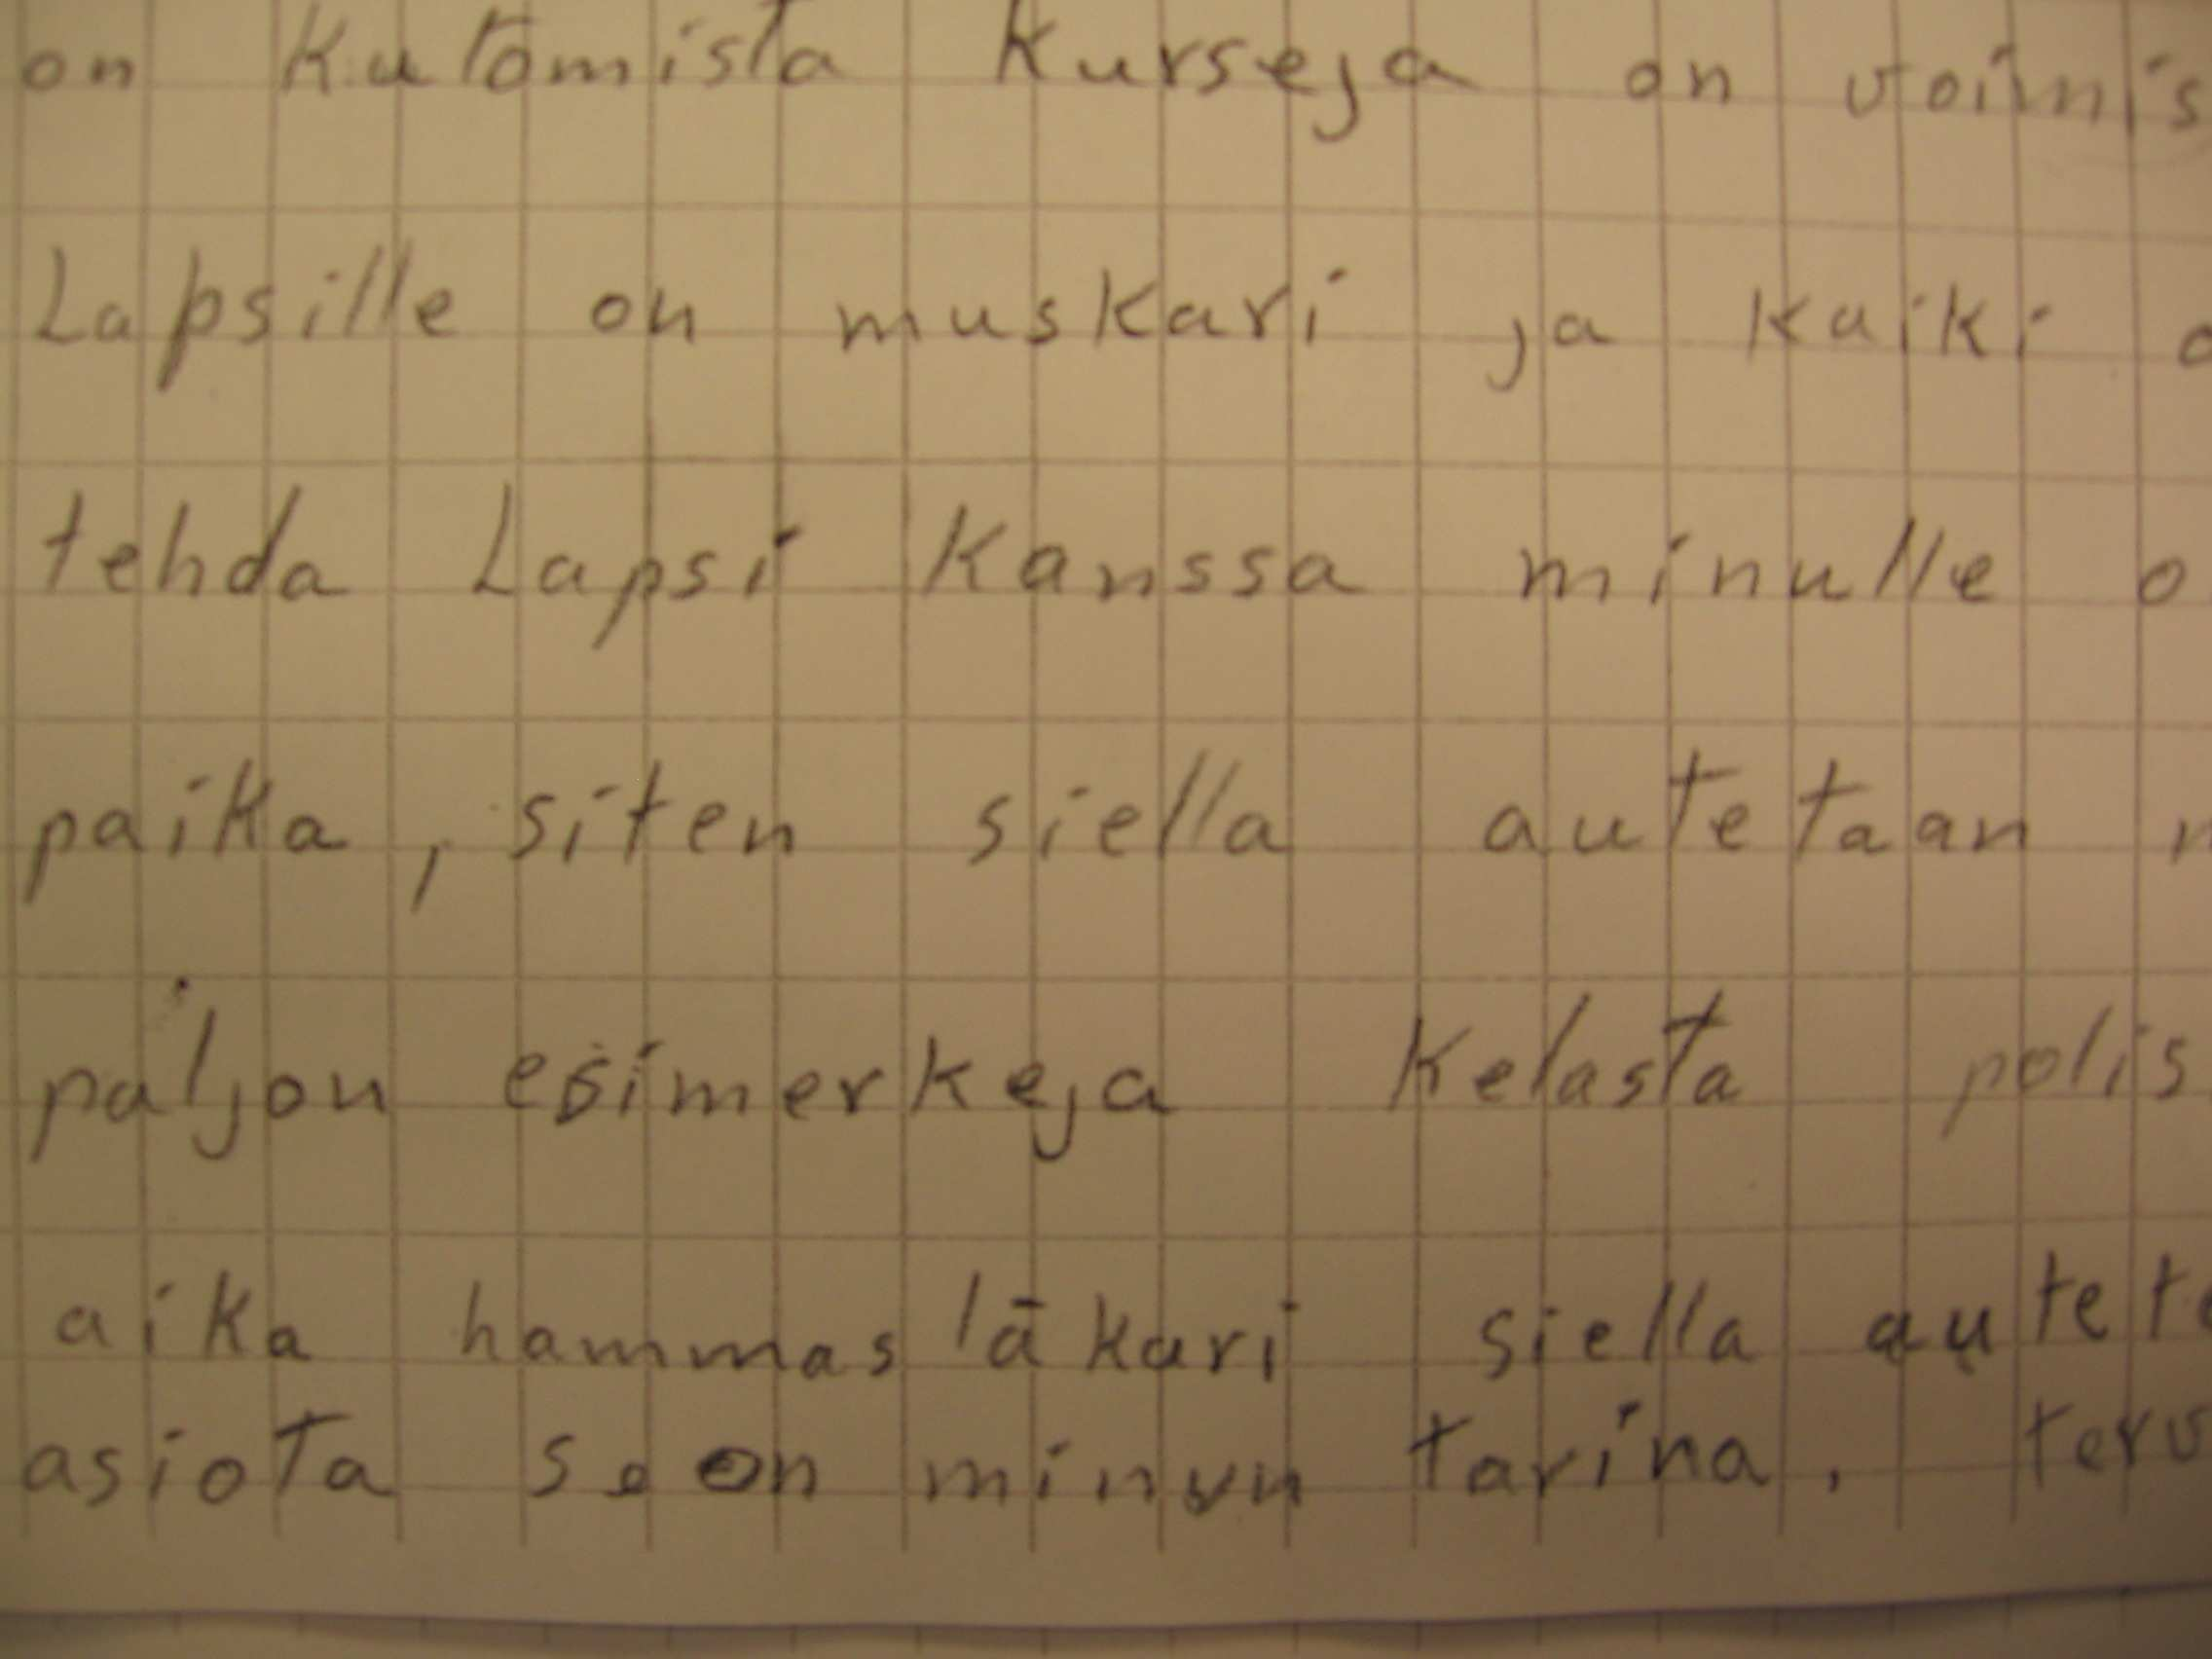 on Kutomista Kurseja on voimis
Lapsille on muskari ja kaiki
tehda Lapsi Kanssa minulle
paika, siten siella autetaan
paljon esimerkeja Kelasta polis
aika hammas läkari siella autet
asiota se on minun tarina. terv